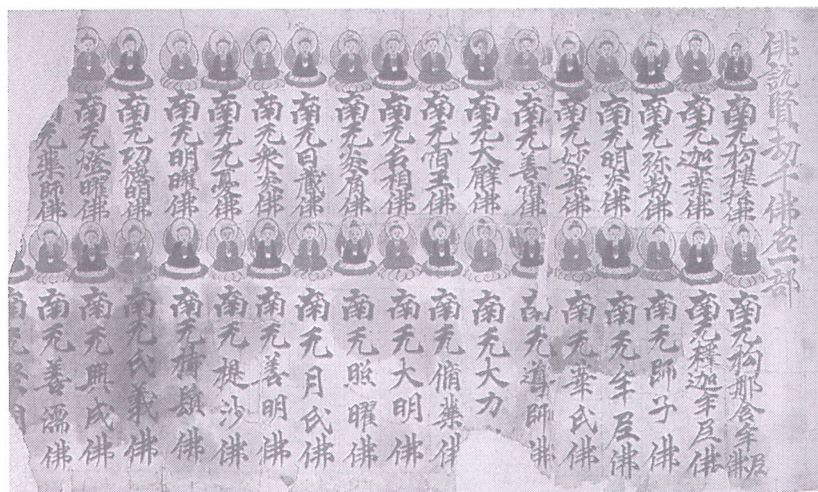 佛說賢刧千佛名一部
南无拘樓孫佛
南无迦葉佛
南无弥勒佛
南无明炎佛
南无妙華佛
南无善宿佛
南无大臂佛
南无宿王佛
南无名相佛
南无炎肩佛
南无日藏佛
南无衆炎佛
南无无憂佛
南无明曜佛
南无功德明佛
南无燈曜佛
无藥師佛
南无拘那含牟尼佛
南无釋迦牟尼佛
南无師子佛
南无牟尼佛
南无華氏佛
南无導師佛
南无大力
南无脩藥佛
南无大明佛
南无照曜佛
南无月氏佛
南无善明佛
南无提沙佛
南无持佛
南无氏義佛
南无興成佛
南无善濡佛